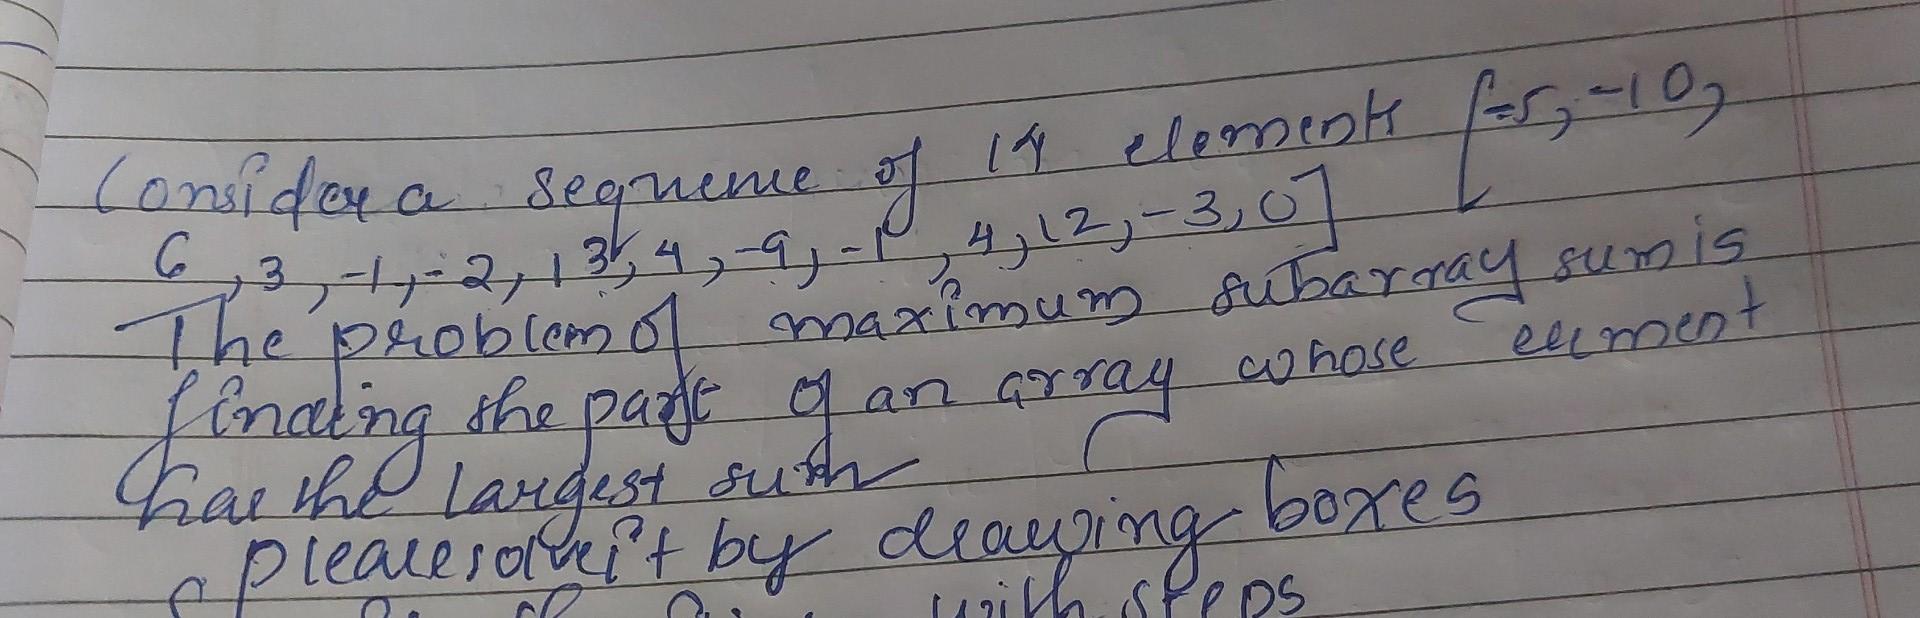 Consider a sequence of 14 elements [-5, -10,
6, 3, -1, -2, 13, 4, -9, -1, 4, 12, -3, 0]
The problem of maximum subarray sum is
finding the part of an array whose element
has the largest sum
please solve it by drawing boxes
with steps